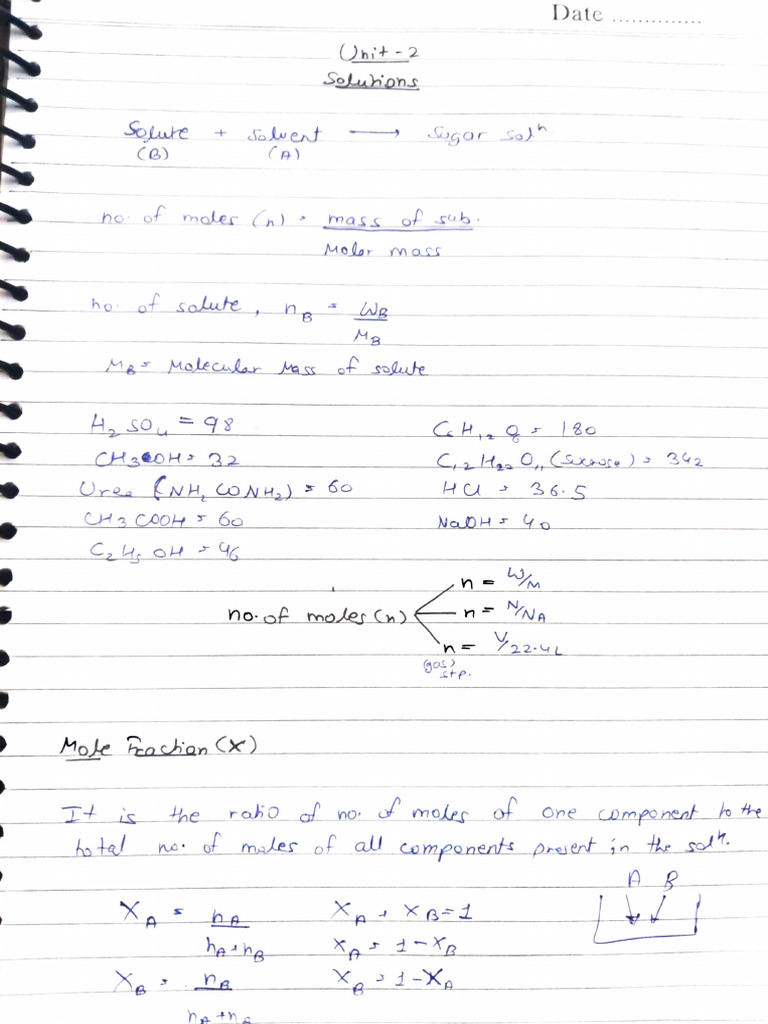 Date ..............
Unit - 2
Solutions
Solute + Solvent → Sugar solⁿ
(B) (A)
no. of moles (n) = mass of sub.
Molar mass
no. of solute, n_B = W_B
M_B
M_B = Molecular Mass of solute
H₂SO₄ = 98 C₆H₁₂O₆ = 180
CH₃OH = 32 C₁₂H₂₂O₁₁ (Sucrose) = 342
Urea (NH₂CONH₂) = 60 HCl = 36.5
CH₃COOH = 60 NaOH = 40
C₂H₅OH = 46
n = W/M
no. of moles (n) n = N/NA
n = V/22.4L
(gas)
stp.
Mole Fraction (X)
It is the ratio of no. of moles of one component to the
total no. of moles of all components present in the solⁿ.
A B
X_A = n_A X_A + X_B = 1
n_A + n_B X_A = 1 - X_B
X_B = n_B X_B = 1 - X_A
n_A + n_B